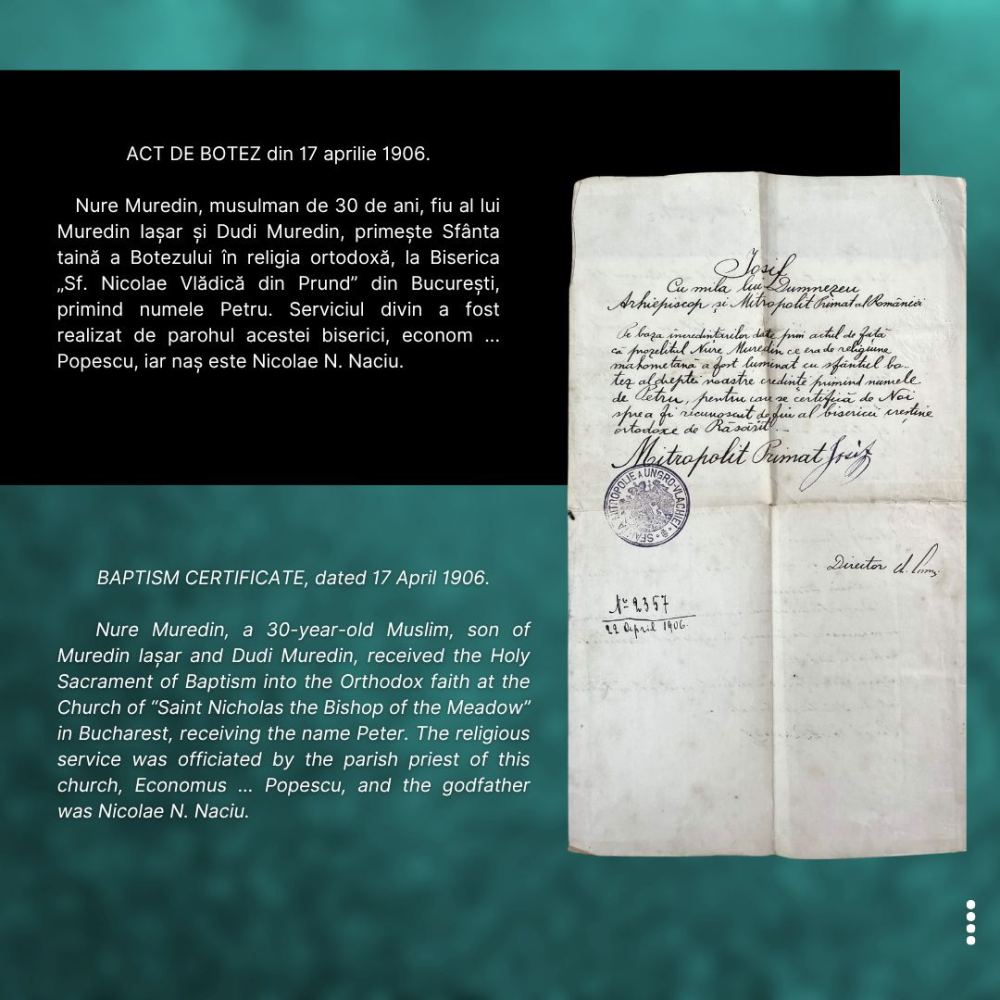 ACT DE BOTEZ din 17 aprilie 1906.
Nure Muredin, musulman de 30 de ani, fiu al lui
Muredin Iașar și Dudi Muredin, primește Sfânta
taină a Botezului în religia ortodoxă, la Biserica
„Sf. Nicolae Vlădică din Prund” din București,
primind numele Petru. Serviciul divin a fost
realizat de parohul acestei biserici, econom ...
Popescu, iar naș este Nicolae N. Naciu.
BAPTISM CERTIFICATE, dated 17 April 1906.
Nure Muredin, a 30-year-old Muslim, son of
Muredin Iașar and Dudi Muredin, received the Holy
Sacrament of Baptism into the Orthodox faith at the
Church of “Saint Nicholas the Bishop of the Meadow”
in Bucharest, receiving the name Peter. The religious
service was officiated by the parish priest of this
church, Economus ... Popescu, and the godfather
was Nicolae N. Naciu.
Iosif
Cu mila lui Dumnezeu
Arhiepiscop și Mitropolit Primat al României
Pe baza incredințărilor date prin actul de față
că prozelitul Nure Muredin ce era de religiune
mahometană a fost luminat cu sfântul bo-
tez al dreptei noastre credințe primind numele
de Petru, pentru care se certifică de Noi
spre a fi recunoscut de fiu al bisericei creștine
ortodoxe de Răsărit.
Mitropolit Primat Iosif
SFÂNTA MITROPOLIE A UNGRO-VLACHIEI
Director
No 2357
22 April 1906.